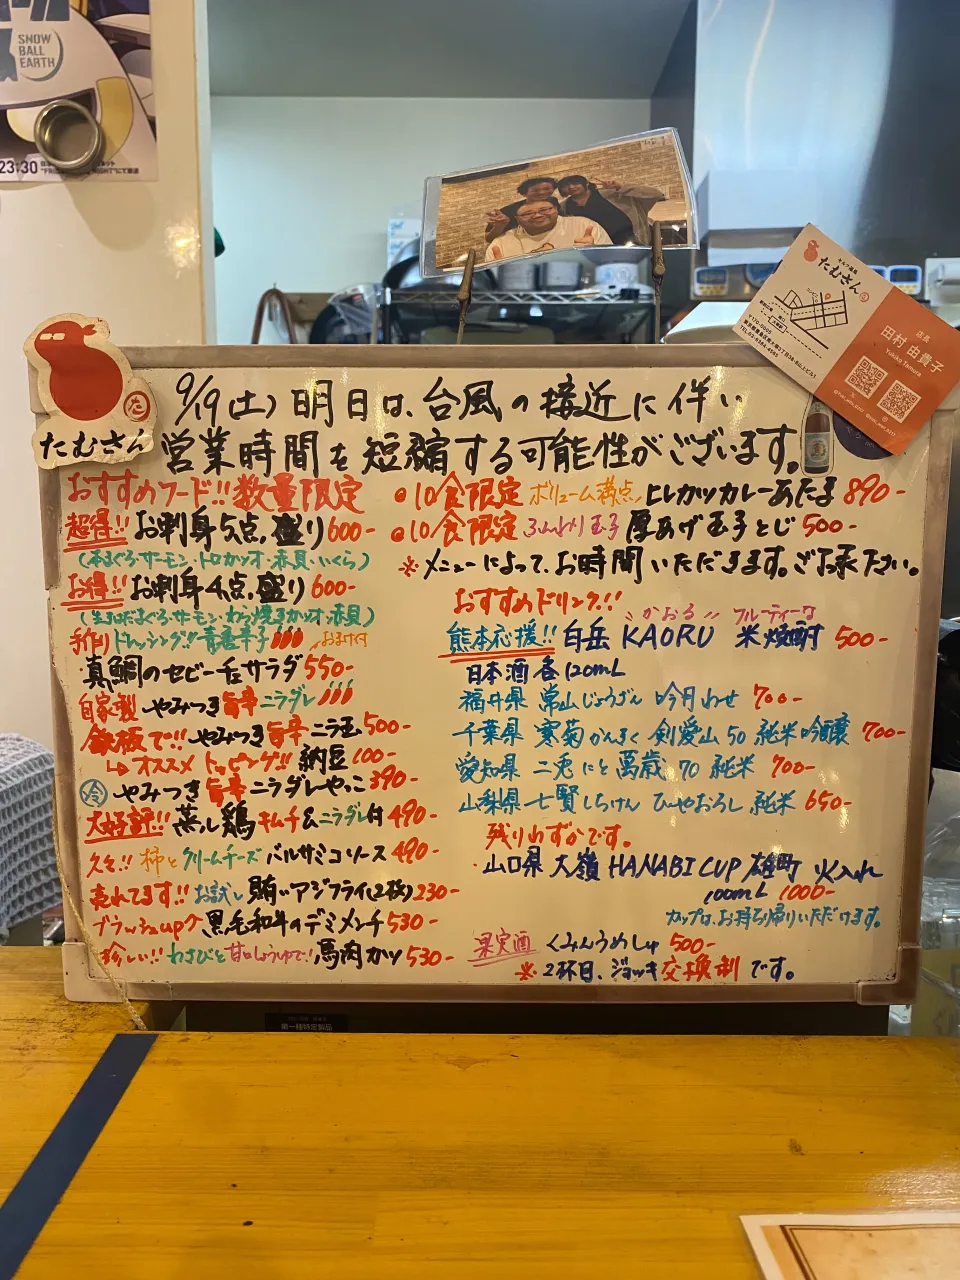 SNOW
BALL
EARTH
23:30
たむさん
店長
田村 由貴子
Yukiko Tamura
たむさん
9/19(土) 明日は、台風の接近に伴い
営業時間を短縮する可能性がございます。
おすすめフード!! 数量限定
超得!! お刺身5点盛り 600-
(本まぐろ・サーモン・トロカツオ・赤貝・いくら)
お得!! お刺身4点盛り 600-
(生本まぐろ・サーモン・わら焼きカツオ・赤貝)
手作りドレッシング!! 青唐辛子 おまけ付
・真鯛のセビーチェサラダ 550-
自家製 やみつき旨辛ニラダレ
鉄板で!! やみつき旨辛ニラ玉 500-
↳オススメ トッピング!! 納豆 100-
冷 やみつき旨辛ニラダレやっこ 390-
大好評!! 蒸し鶏キムチ&ニラダレ付 490-
久々!! 柿とクリームチーズ バルサミコソース 490-
売れてます!! お試し 賄いアジフライ(2枚) 230-
ブラッシュup↗ 黒毛和牛のデミメンチ 530-
珍しい!! わさびと甘口しょうゆで! 馬肉カツ 530-
●10食限定 ボリューム満点! ヒレカツカレーあたま 890-
●10食限定 ふんわり玉子 厚あげ玉子とじ 500-
※メニューによって、お時間いただきます。ご了承ください。
おすすめドリンク!!
かおる フルーティーな
熊本応援!! 白岳 KAORU 米焼酎 500-
日本酒 各120mL
福井県 常山じょうざん 吟月わせ 700-
千葉県 寒菊かんきく 剣愛山50 純米吟醸 700-
愛知県 二兎にと 萬歳70 純米 700-
山梨県 七賢しちけん ひやおろし 純米 650-
残りわずかです。
・山口県 大嶺 HANABI CUP 雄町 火入れ
100mL 1000-
カップは、お持ち帰りいただけます。
果実酒 くみんうめしゅ 500-
※2杯目、ジョッキ交換制です。
第一種特定製品